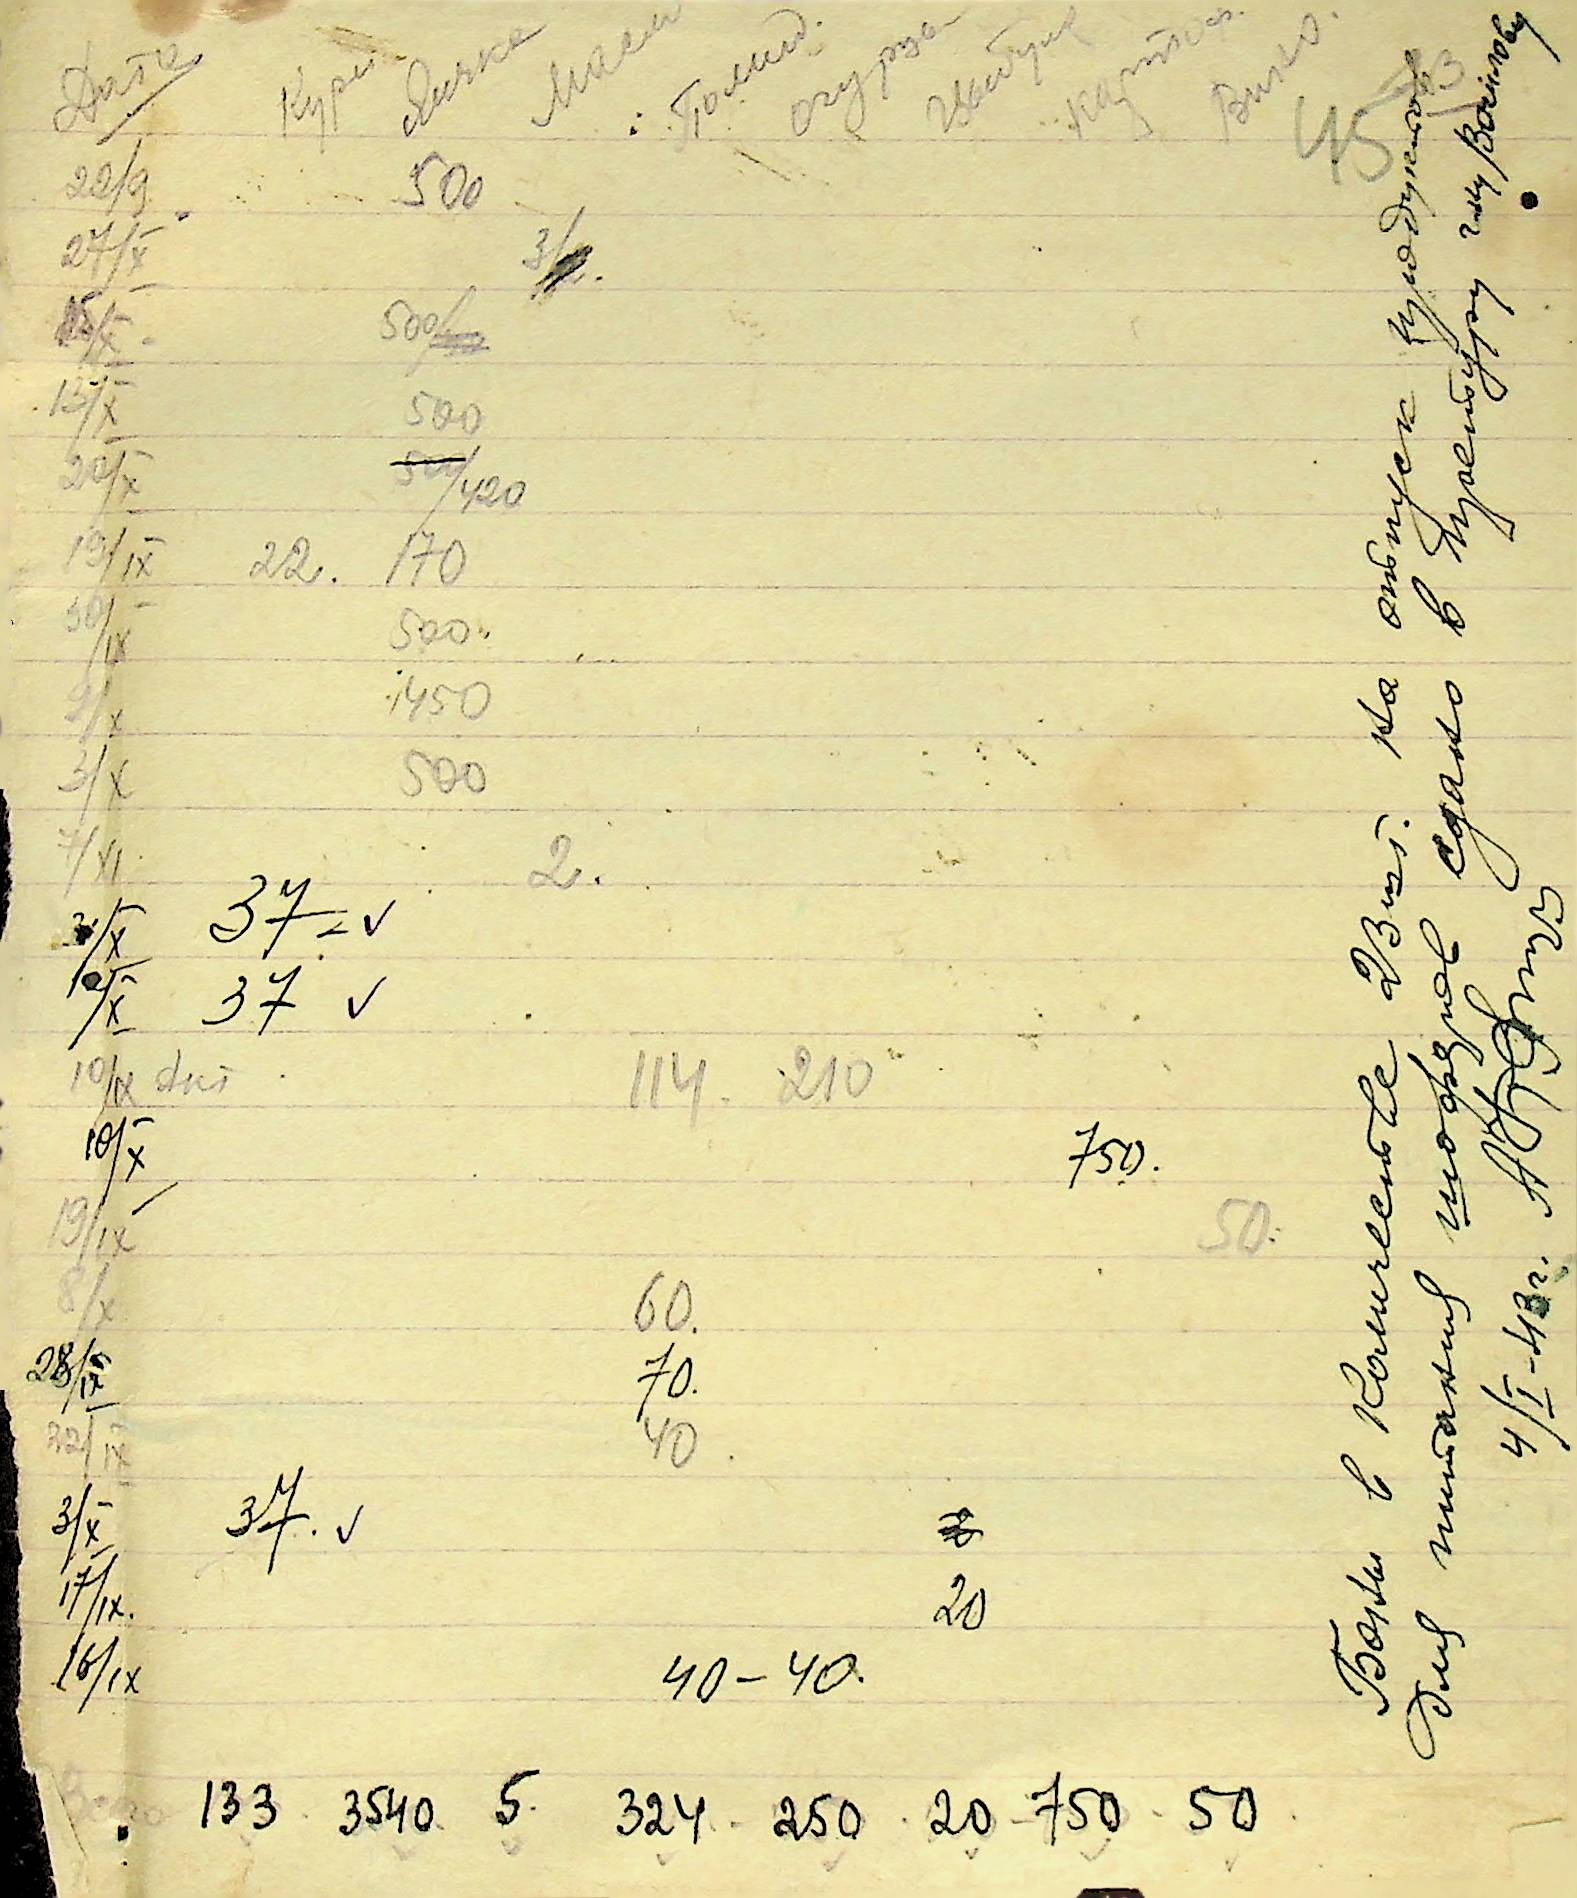 Дата Куры Яички Масла Помид. огурцы Арбузы картоф. Вино.
45
22/9 500
27/IX 3/
15/X 500/
13/X 500
20/X 500/420
19/IX 22. 170
30/IX 500
9/X 450
3/X 500
7/XI 2.
3/X 37 = ✓
10/X 37 ✓
10/IX 114. 210
10/X 750.
19/IX 50.
8/X 60.
28/IX 70.
22/IX 40
3/X 37. ✓
17/IX. 20
16/IX 40-40.
Всего 133 3540 5. 324 250 20 750 50
Боны в количестве 23 шт. на отпуск продуктов
для питания шоферов сдано в Прокатуру
4/I-43г.